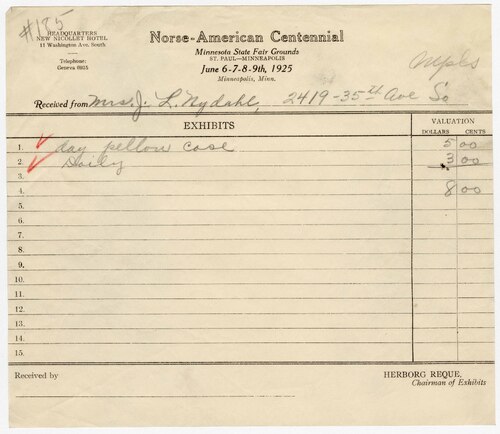 #185
HEADQUARTERS
NEW NICOLLET HOTEL
11 Washington Ave. South
Telephone:
Geneva 0815
Norse-American Centennial
Minnesota State Fair Grounds
ST. PAUL—MINNEAPOLIS
June 6-7-8-9th, 1925
Minneapolis, Minn.
Mpls
Received from Mrs. J. L. Nydahl, 2419-35th Ave So
EXHIBITS
VALUATION
DOLLARS CENTS
1. day pellow case 5 00
2. Doily 3 00
3.
4. 8 00
5.
6.
7.
8.
9.
10.
11.
12.
13.
14.
15.
Received by
HERBORG REQUE,
Chairman of Exhibits